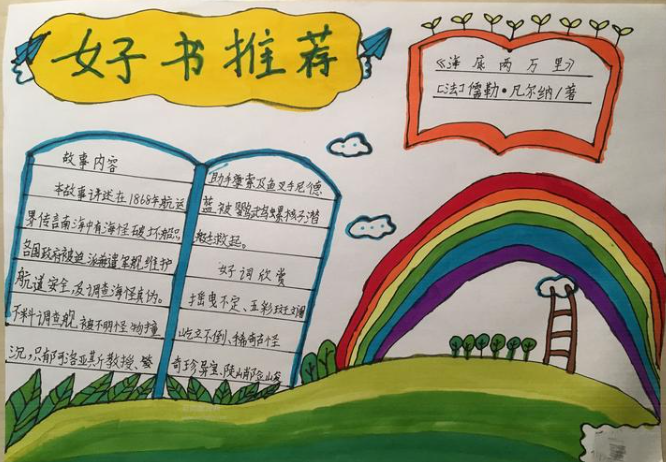 好书推荐
《海底两万里》
[法]儒勒·凡尔纳/著
故事内容
本故事讲述在1868年航运
界传言南海中有海怪破坏船只
各国政府被迫派遣军舰维护
航道安全,及调查海怪真伪。
不料调查舰被不明怪物撞
沉,只部阿洛亚其斤教授、
助手康索及鱼叉手尼德
蓝被鹦鹉螺桅子潜
艇救起。
好词欣赏
摇曳不定、五彩斑斓
屹立不倒、稀奇古怪
奇珍异宝、陡峭险峻